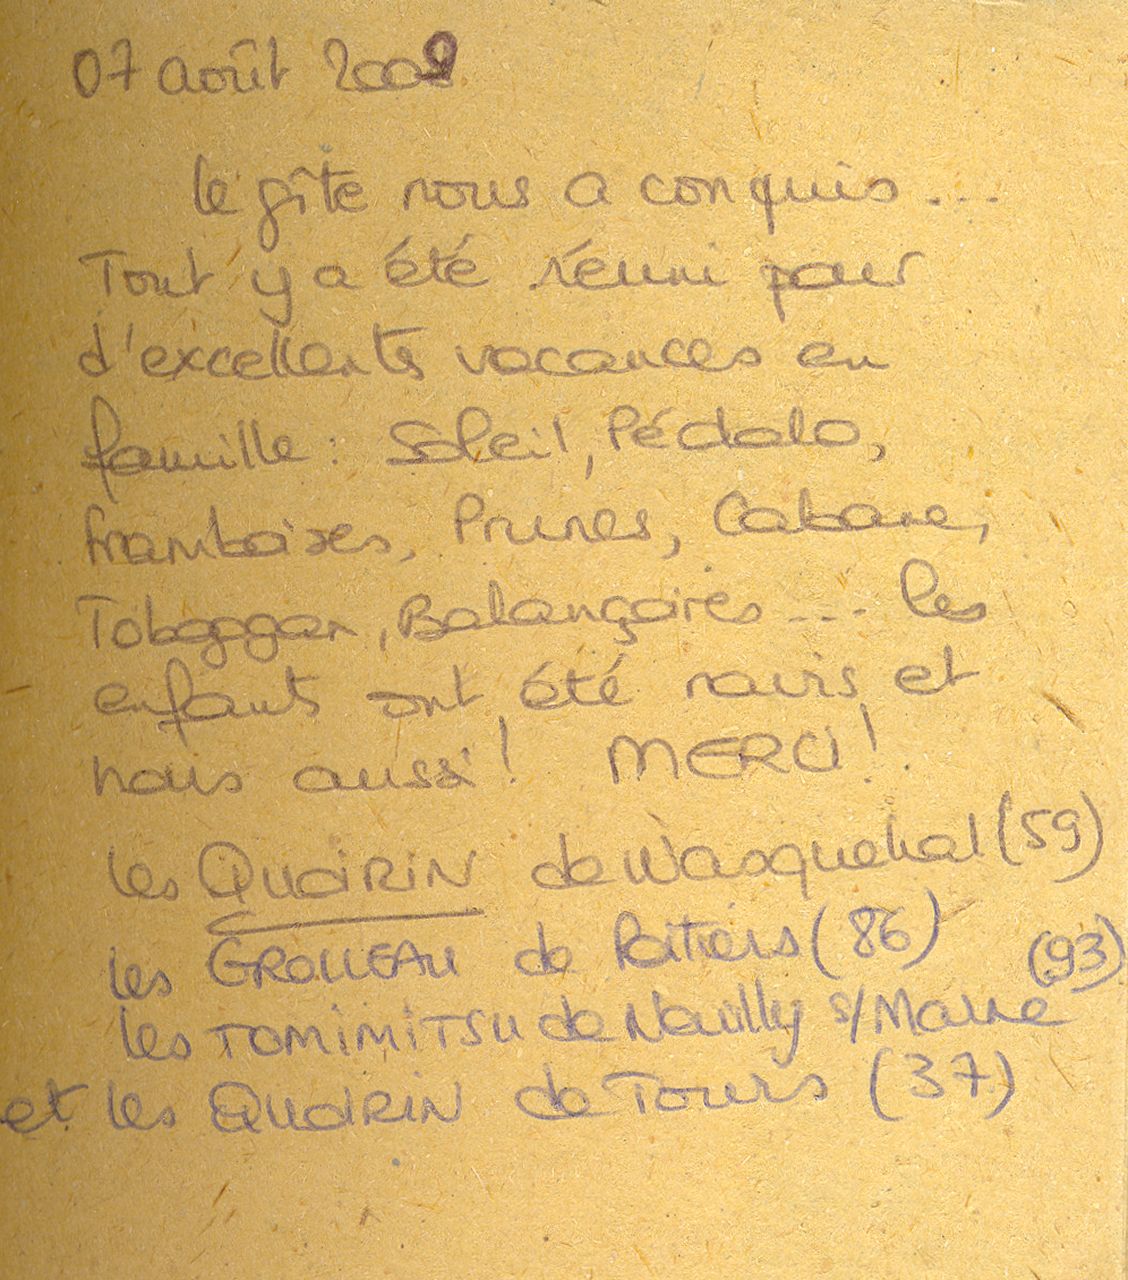 07 août 2009
le gîte nous a conquis ...
Tout y a été réuni pour
d'excellentes vacances en
famille : Soleil, Pédalo,
framboises, Prunes, Cabane,
Toboggan, Balançoires ... les
enfants ont été ravis et
nous aussi ! MERCI !
les QUOIRIN de Wasquehal (59)
les GROLLEAU de Poitiers (86)
(93)
les TOMIMITSU de Neuilly s/Marne
et les QUOIRIN de Tours (37)